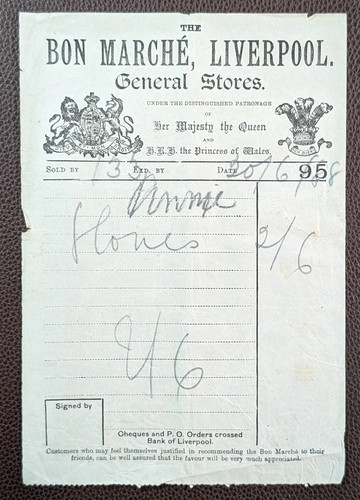 THE
BON MARCHÉ, LIVERPOOL.
General Stores.
UNDER THE DISTINGUISHED PATRONAGE
OF
Her Majesty the Queen
AND
H.R.H. the Princess of Wales.
SOLD BY 133 EXD. BY DATE 20/6/98
95
Annie
Gloves 2/6
2/6
Signed by
Cheques and P. O. Orders crossed
Bank of Liverpool.
Customers who may feel themselves justified in recommending the Bon Marché to their
friends, can be well assured that the favour will be very much appreciated.